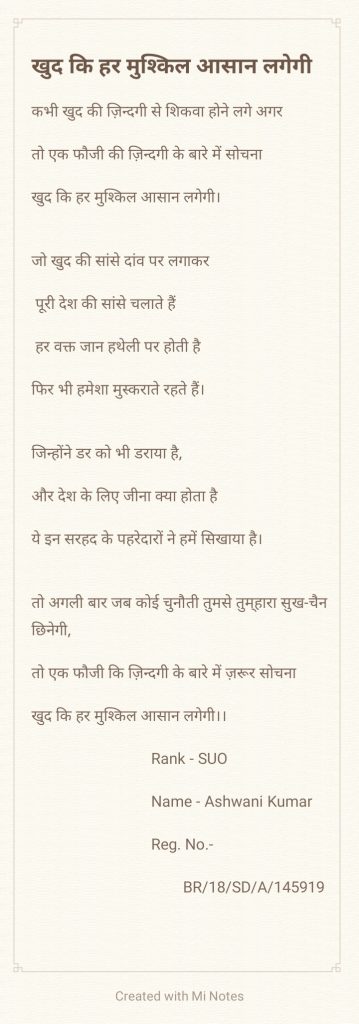 खुद कि हर मुश्किल आसान लगेगी
कभी खुद की ज़िन्दगी से शिकवा होने लगे अगर
तो एक फौजी की ज़िन्दगी के बारे में सोचना
खुद कि हर मुश्किल आसान लगेगी।
जो खुद की सांसे दांव पर लगाकर
पूरी देश की सांसे चलाते हैं
हर वक्त जान हथेली पर होती है
फिर भी हमेशा मुस्कराते रहते हैं।
जिन्होंने डर को भी डराया है,
और देश के लिए जीना क्या होता है
ये इन सरहद के पहरेदारों ने हमें सिखाया है।
तो अगली बार जब कोई चुनौती तुमसे तुम्हारा सुख-चैन
छिनेगी,
तो एक फौजी कि ज़िन्दगी के बारे में ज़रूर सोचना
खुद कि हर मुश्किल आसान लगेगी।।
Rank - SUO
Name - Ashwani Kumar
Reg. No.-
BR/18/SD/A/145919
Created with Mi Notes